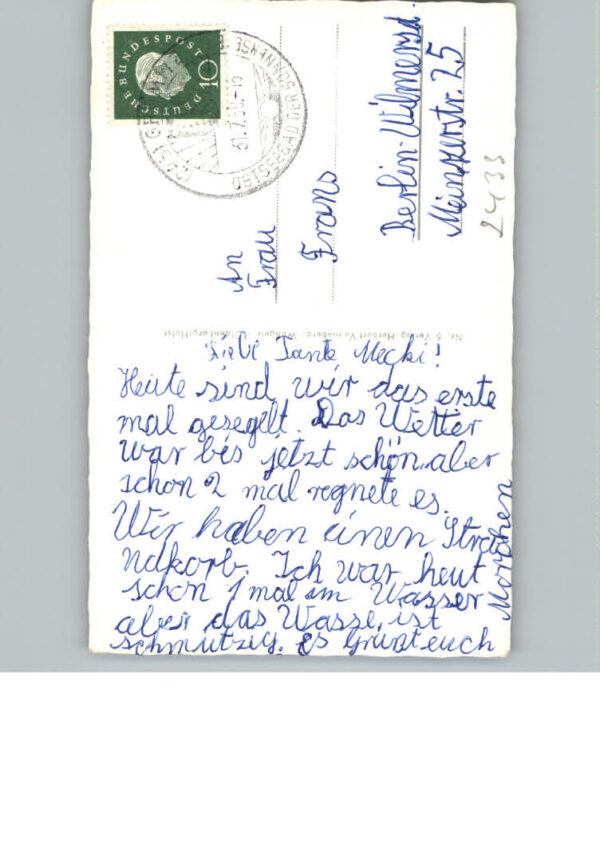 DEUTSCHE BUNDESPOST
10
OSTSEEBAD DER SONNENSEITE
31.7.59.-15
An
Frau
Frans
Berlin-Wilmersd.
Mainzerstr. 25
2433
Nr. 5 Verlag Herbert
Liebe Tante Mecki!
Heute sind wir das erste
mal gesegelt. Das Wetter
war bis jetzt schön, aber
schon 2 mal regnete es.
Wir haben einen Stra
ndkorb. Ich war heut
schon 1 mal im Wasser
aber das Wasse, ist
schmutzig. Es Grüßt euch
Morchen